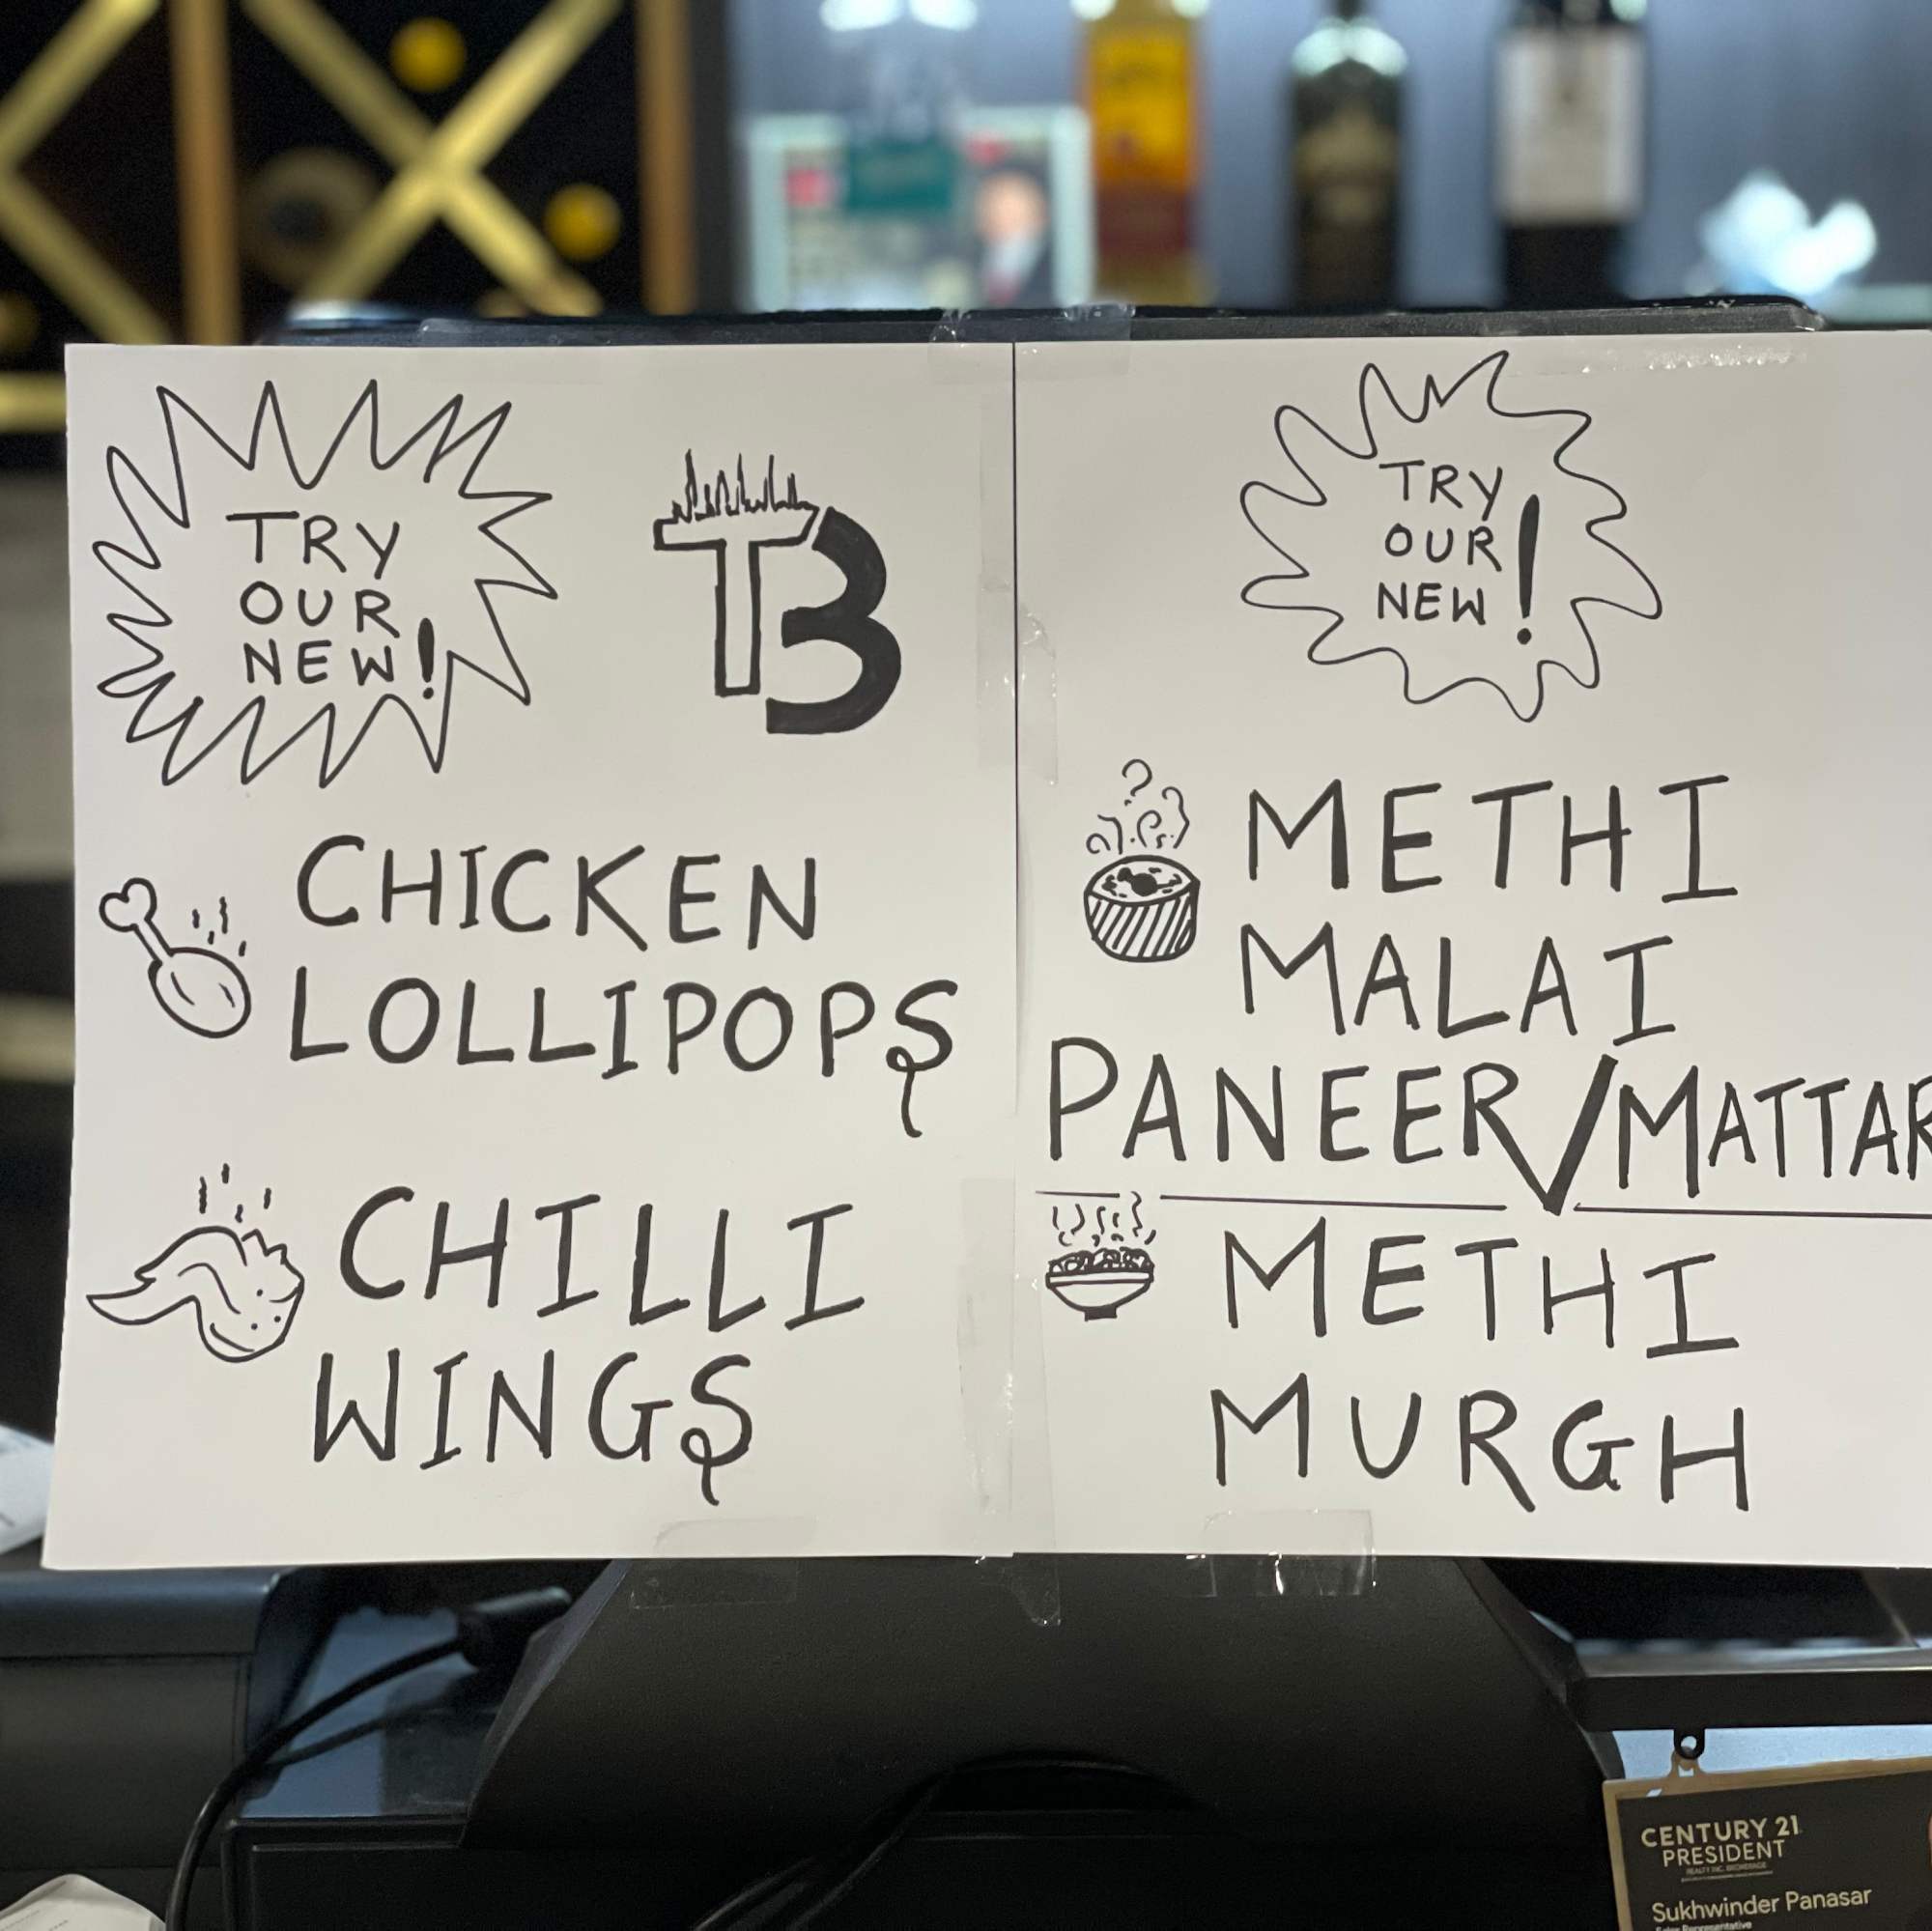 TRY
OUR
NEW!
TB
CHICKEN
LOLLIPOPS
CHILLI
WINGS
TRY
OUR
NEW!
METHI
MALAI
PANEER/MATTAR
METHI
MURGH
CENTURY 21
PRESIDENT
REALTY INC. BROKERAGE
Sukhwinder Panasar
Sales Representative